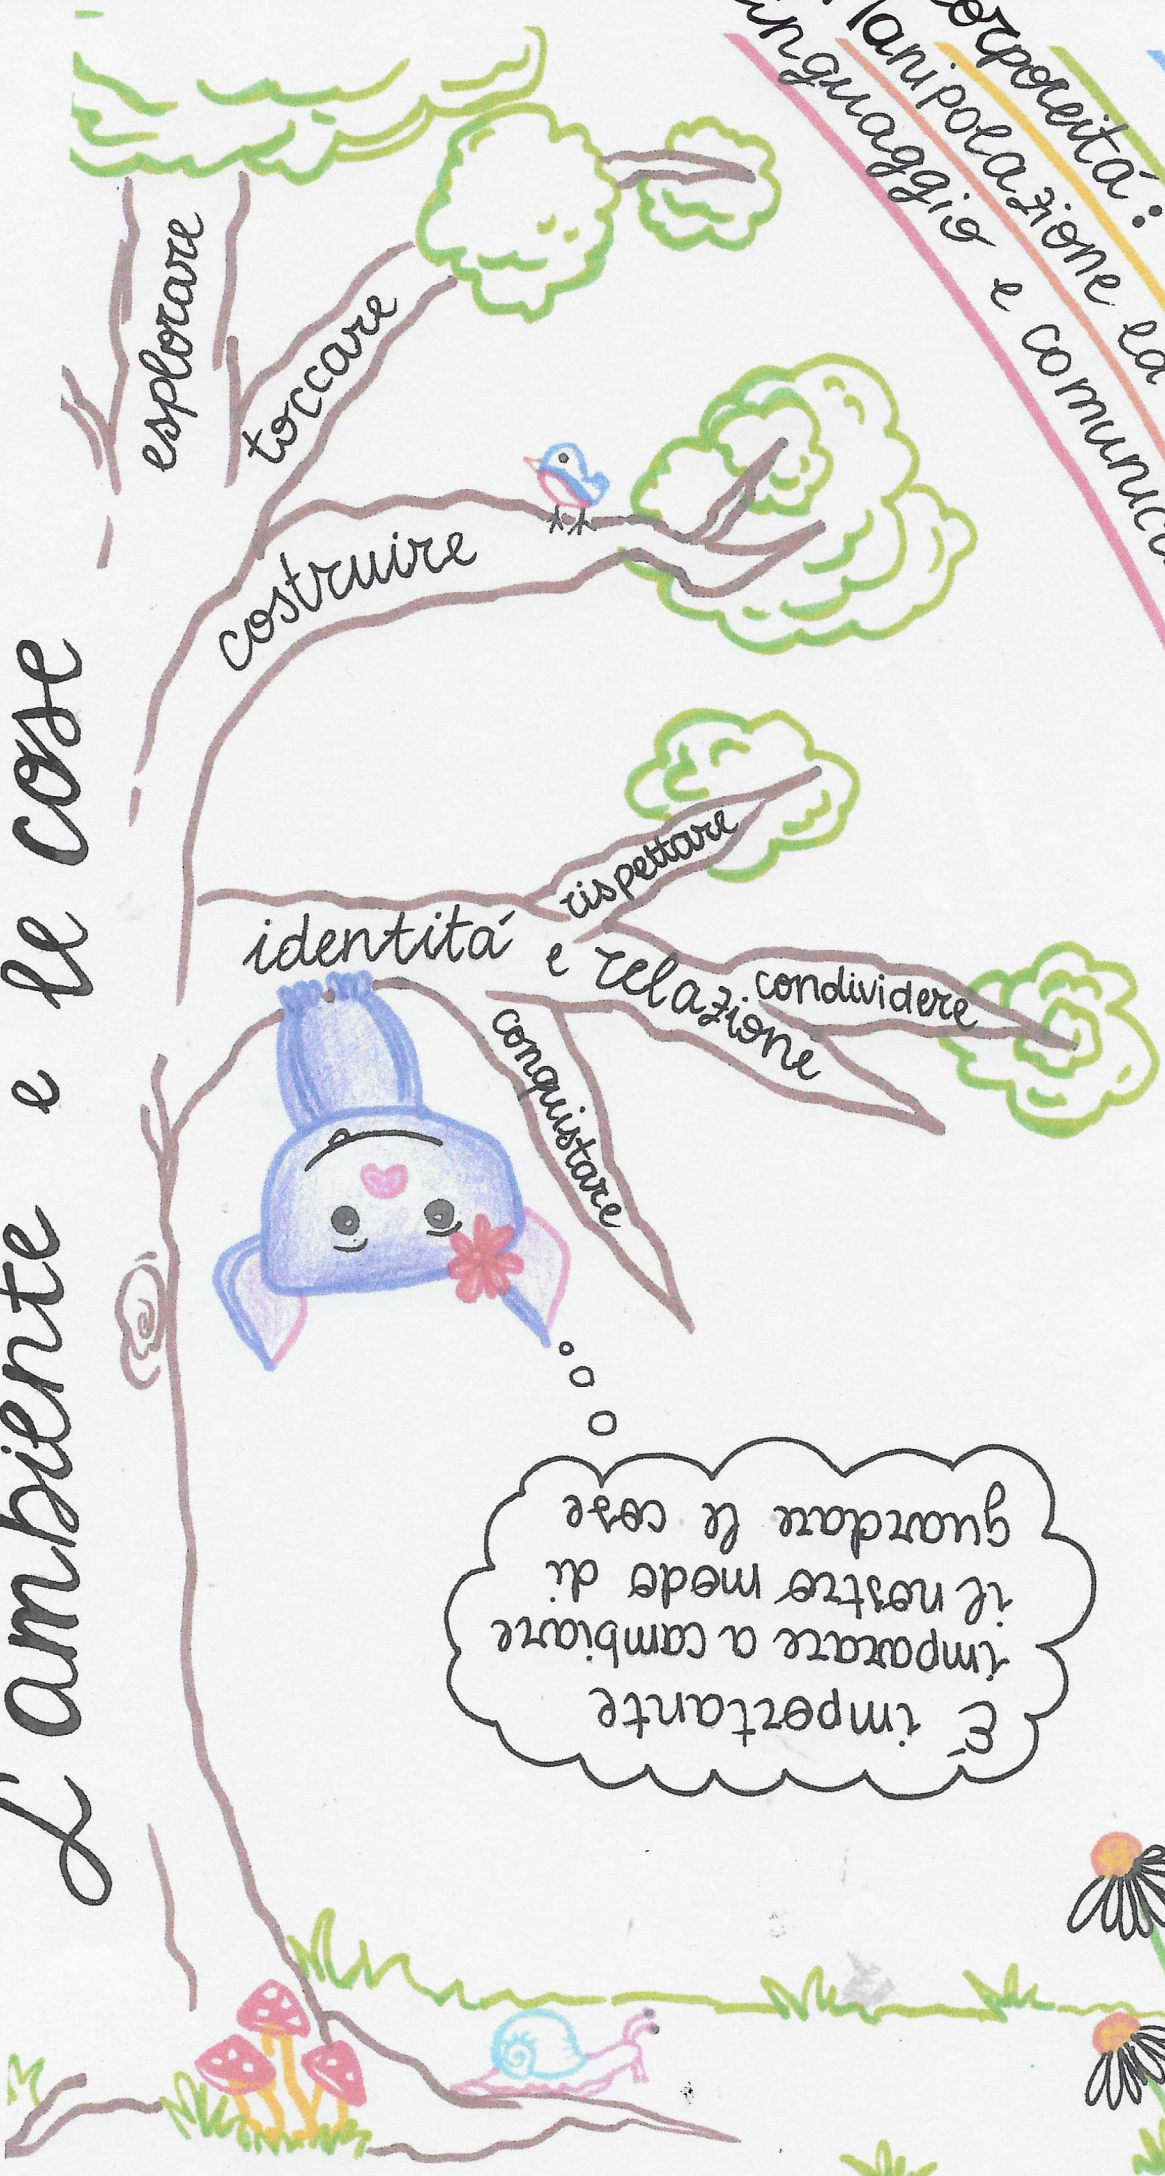 L'ambiente e le cose
esplorare
toccare
costruire
identitá e relazione
rispettare
condividere
conquistare
É importante
imparare a cambiare
il nostro modo di
guardare le cose
linguaggio e